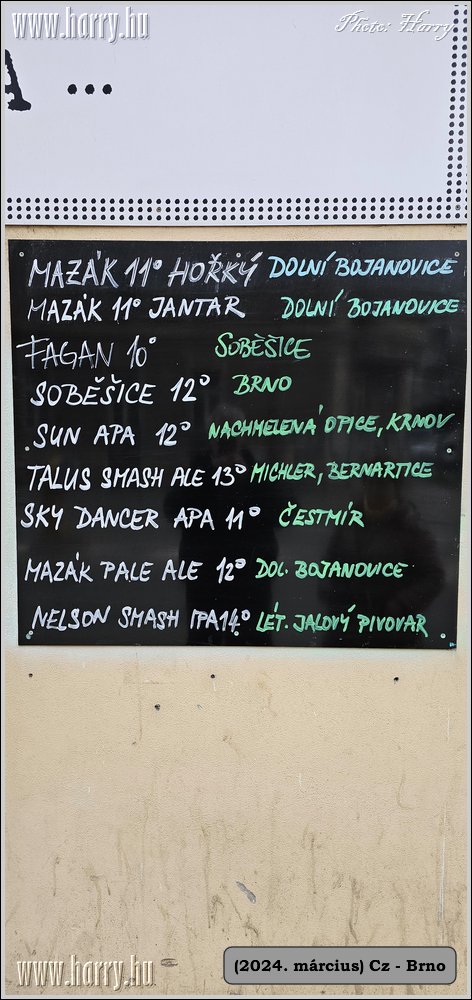 www.harry.hu
Photo: Harry
A ...
MAZÁK 11° HOŘKÝ DOLNÍ BOJANOVICE
MAZÁK 11° JANTAR DOLNÍ BOJANOVICE
FAGAN 10° SOBĚŠICE
SOBĚŠICE 12° BRNO
SUN APA 12° NACHMELENÁ OPICE, KRNOV
TALUS SMASH ALE 13° MICHLER, BERNARTICE
SKY DANCER APA 11° ČESTMÍR
MAZÁK PALE ALE 12° DOL. BOJANOVICE
NELSON SMASH IPA 14° LÉT. JALOVÝ PIVOVAR
www.harry.hu
(2024. március) Cz - Brno